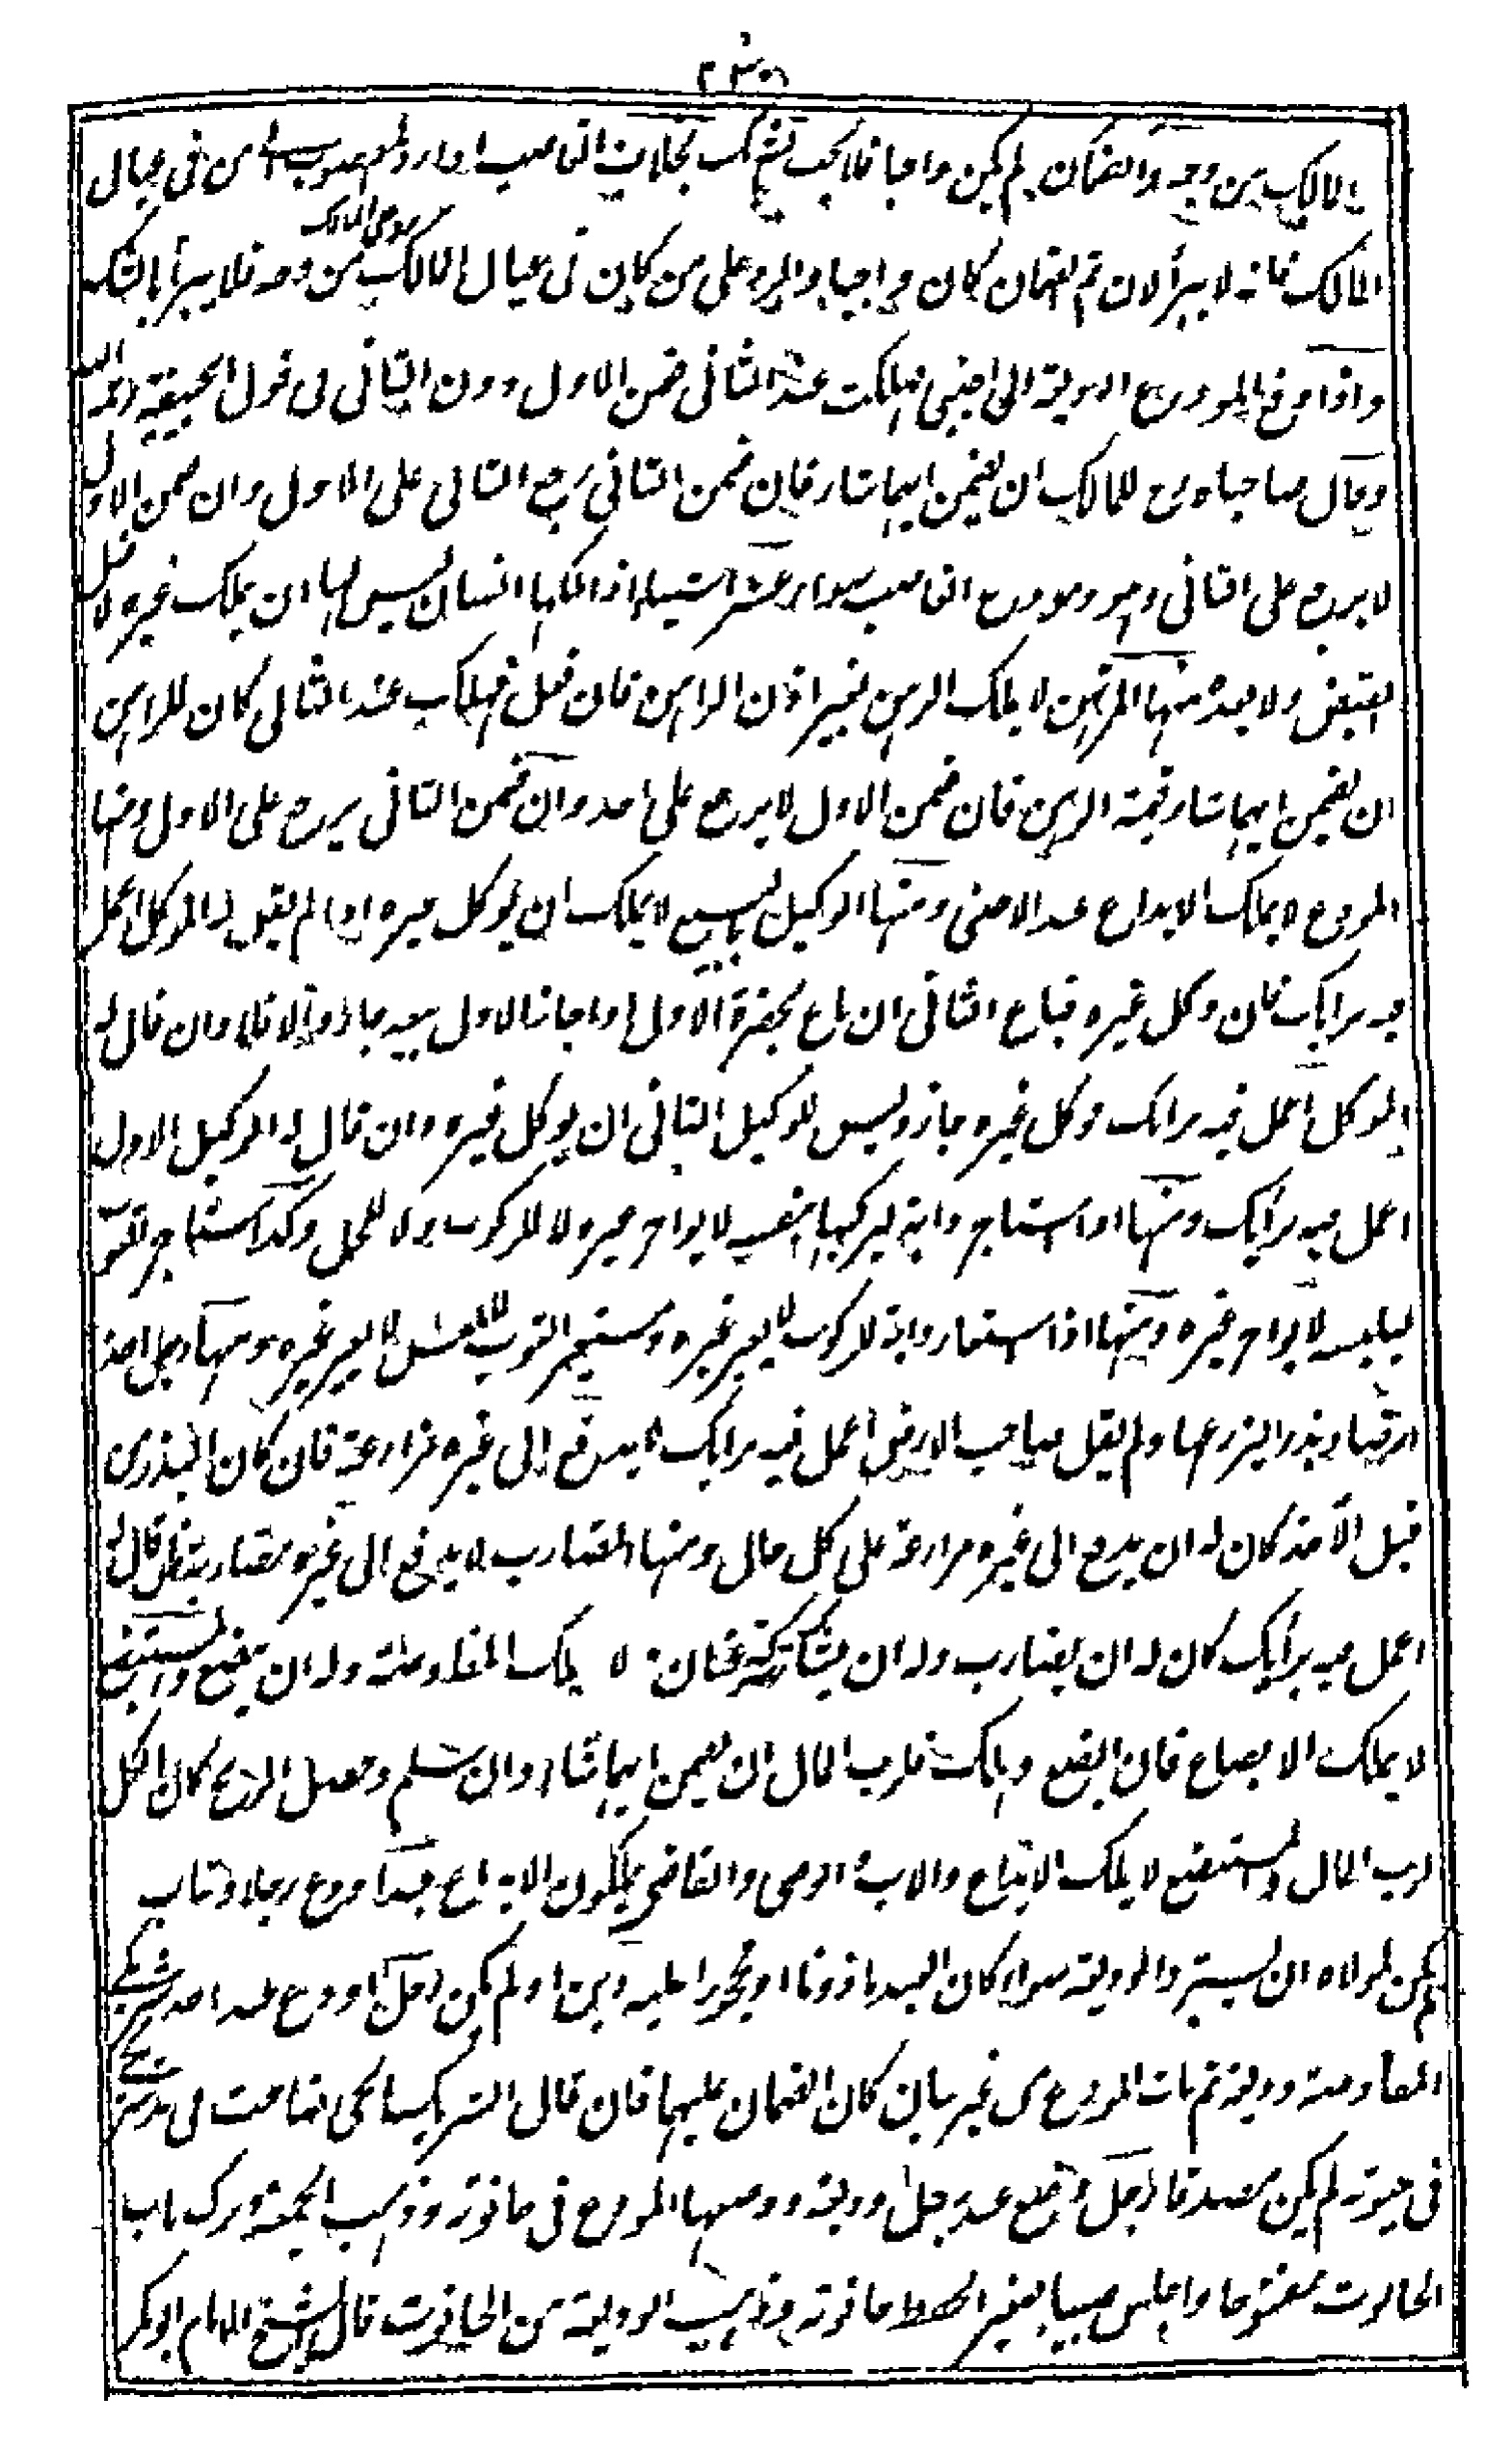 المالك من وجه والضمان لم يكن واجبا فلا يجب بالشك بخلاف الغاصب اذا رد المغصوب الى من فى عيال
المالك فانه لا يبرأ لان ثم الضمان كان واجبا والرد على من كان فى عيال المالك رد على المالك من وجه فلا يبرأ بالشك
واذا دفع المودع الوديعة الى اجنبى فهلكت عند الثانى ضمن الاول دون الثانى فى قول ابى حنيفة رحمه الله
وقال صاحباه رح للمالك ان يضمن ايهما شاء فان ضمن الثانى رجع الثانى على الاول وان ضمن الاول
لا يرجع على الثانى وهو ومودع الغاصب سواء عشرة اشياء اذا ملكها انسان ليس لها ان يملك غيره لا قبل
القبض ولا بعده منها المرتهن لا يملك الرهن بغير اذن الراهن فان فعل فهلك عند الثانى كان للراهن
ان يضمن ايهما شاء قيمة الرهن فان ضمن الاول لا يرجع على احد وان ضمن الثانى يرجع على الاول ومنها
المودع لا يملك الايداع عند الاجنبى ومنها الوكيل بالبيع لا يملك ان يوكل غيره اذا لم يقل له الموكل اعمل
فيه برايك فان وكل غيره فباع الثانى ان باع بحضرة الاول او اجاز الاول بيعه جاز والا فلا وان قال له
الموكل اعمل فيه برايك فوكل غيره جاز وليس للوكيل الثانى ان يوكل غيره وان قال له الوكيل الاول
اعمل فيه برايك ومنها اذا استاجر دابة ليركبها بنفسه لا يواجر غيره لا للركوب ولا للحمل وكذا لو استاجر ثوبا
ليلبسه لا يواجر غيره ومنها اذا استعار دابة للركوب لا يعير غيره ومستعير الثوب للبس لا يعير غيره ومنها رجل اخذ
ارضا وبذرا ليزرعها ولم يقل صاحب الارض اعمل فيه برايك لا يدفع الى غيره مزارعة فان كان البذر من
قبل الآخذ كان له ان يدفع الى غيره مزارعة على كل حال ومنها المضارب لا يدفع الى غيره مضاربة فان قال له
اعمل فيه برايك كان له ان يضارب وله ان يشارك شركة عنان لا يملك المفاوضة وله ان يبضع والمستبضع
لا يملك الابضاع فان ابضع وهلك فلرب المال ان يضمن ايهما شاء وان سلم وحصل الربح كان الكل
لرب المال والمستبضع لا يملك الايداع والاب والوصى والقاضى يملكون الايداع عبد اودع رجلا وغاب
لم يكن لمولاه ان يسترد الوديعة سواء كان العبد ماذونا او محجورا عليه دين او لم يكن رجل اودع عند احد شريكى
المفاوضة وديعة ثم مات المودع من غير بيان كان الضمان عليهما فان قال الشريك الحى ضاعت فى يد شريكى
فى حيوته لم يكن مصدقا رجل وضع عند رجل وديعة ووضعها المودع فى حانوته وذهب الجمعة وترك باب
الحانوت مفتوحا واجلس صبيا صغيرا لحفظ حانوته وذهبت الوديعة من الحانوت قال الشيخ الامام ابو بكر